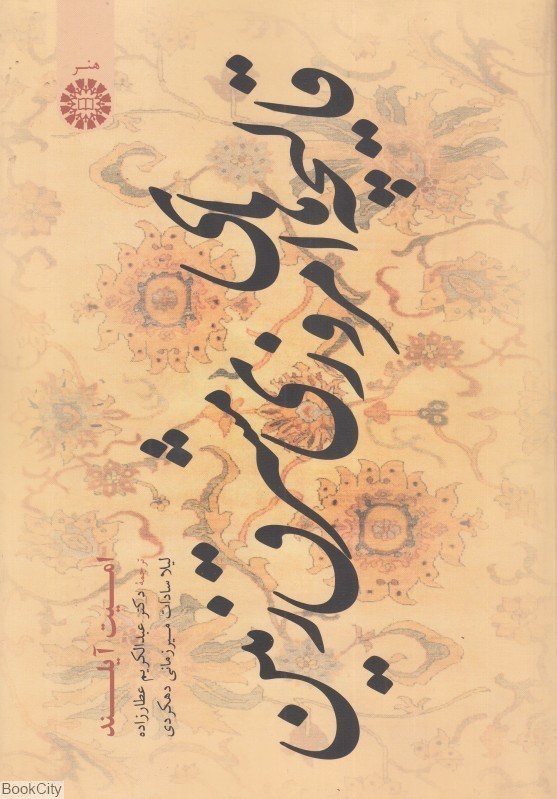 هنر
قالیچه‌های
امروزی
مشرق زمین
امنیت آیلند
ترجمه دکتر عبدالکریم عطارزاده
لیلا سادات میرزمانی دهکردی
BookCity